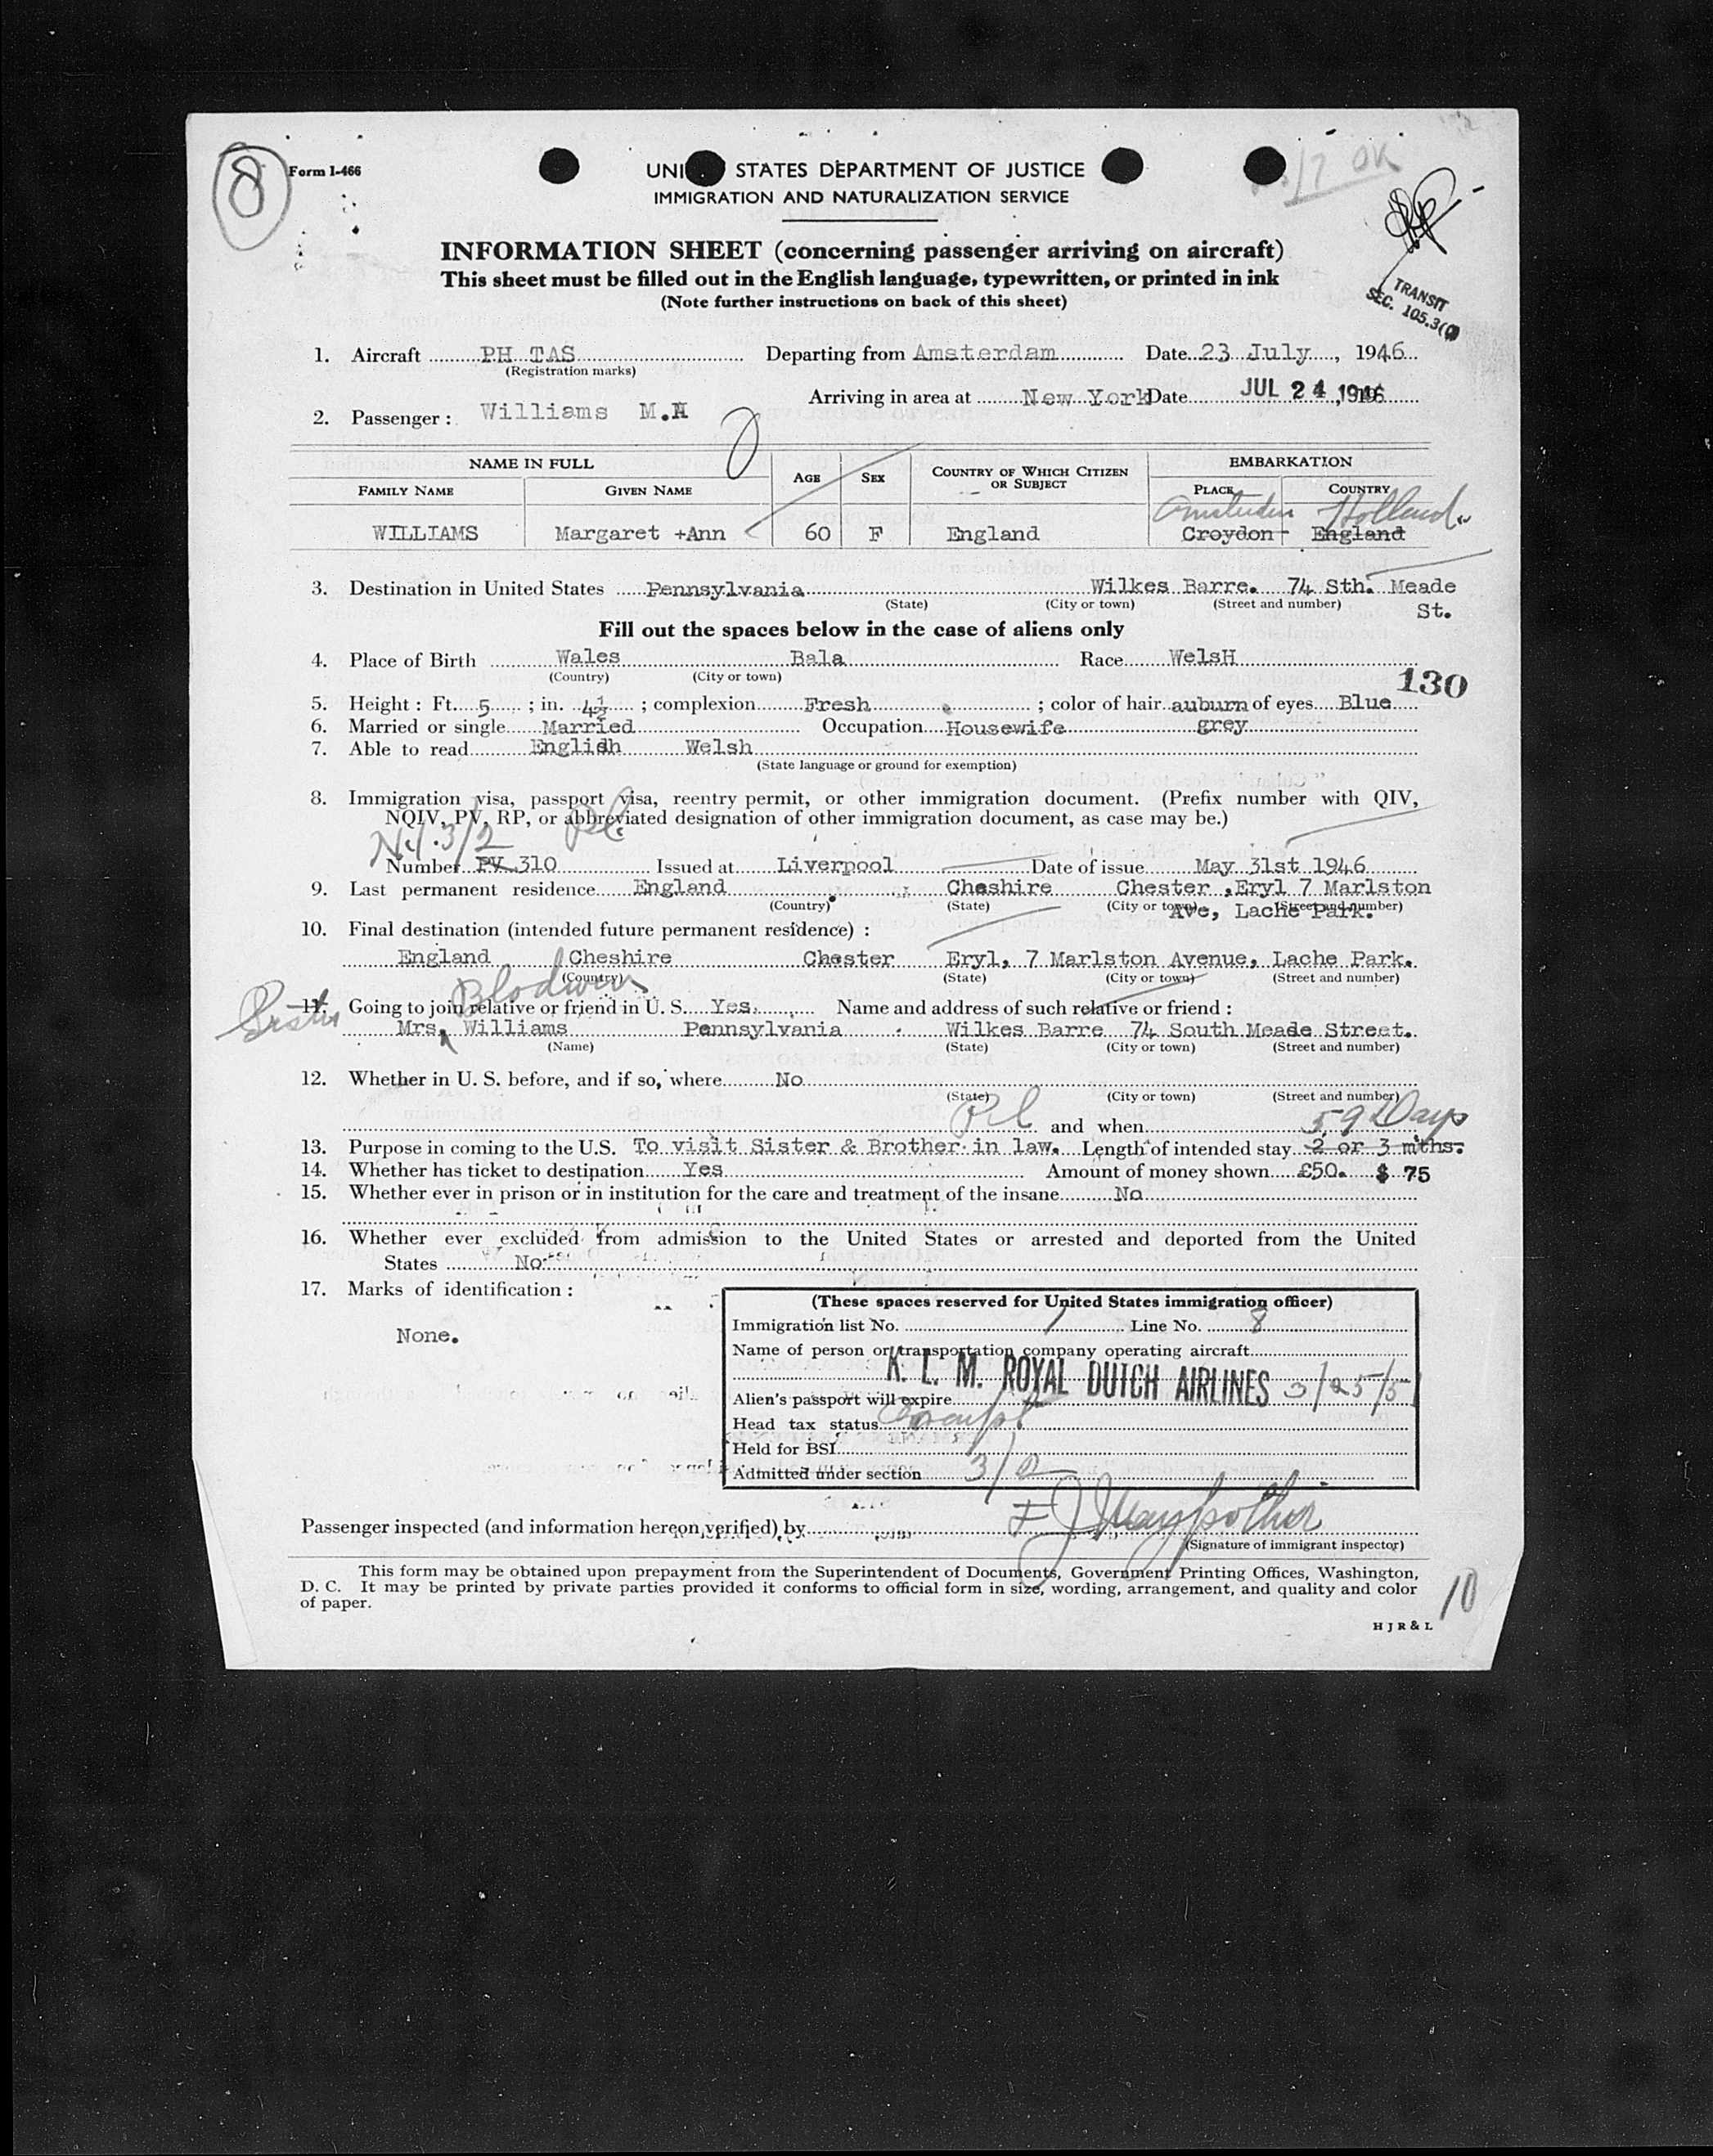 8
Form I-466
UNI STATES DEPARTMENT OF JUSTICE
IMMIGRATION AND NATURALIZATION SERVICE
17 OK
INFORMATION SHEET (concerning passenger arriving on aircraft)
This sheet must be filled out in the English language, typewritten, or printed in ink
(Note further instructions on back of this sheet)
TRANSIT
SEC. 105.3(
1. Aircraft PH TAS Departing from Amsterdam Date 23 July, 1946
(Registration marks)
Arriving in area at New York Date JUL 24, 1946
2. Passenger: Williams M.A
NAME IN FULL AGE SEX COUNTRY OF WHICH CITIZEN OR SUBJECT EMBARKATION
FAMILY NAME GIVEN NAME PLACE COUNTRY
Amsterdam Holland
WILLIAMS Margaret +Ann 60 F England Croydon England
3. Destination in United States Pennsylvania Wilkes Barre. 74 Sth. Meade
(State) (City or town) (Street and number) St.
Fill out the spaces below in the case of aliens only
4. Place of Birth Wales Bala Race WelsH
(Country) (City or town)
130
5. Height: Ft. 5; in. 4½; complexion Fresh; color of hair auburn of eyes Blue
6. Married or single Married Occupation Housewife grey
7. Able to read English Welsh
(State language or ground for exemption)
8. Immigration visa, passport visa, reentry permit, or other immigration document. (Prefix number with QIV,
NQIV, PV, RP, or abbreviated designation of other immigration document, as case may be.)
3/2
Number PV 310 Issued at Liverpool Date of issue May 31st 1946
9. Last permanent residence England Cheshire Chester, Eryl 7 Marlston
(Country) (State) (City or town) (Street and number)
Ave, Lache Park.
10. Final destination (intended future permanent residence):
England Cheshire Chester Eryl, 7 Marlston Avenue, Lache Park.
(Country) (State) (City or town) (Street and number)
Sister Blodwen
11. Going to join relative or friend in U. S. Yes. Name and address of such relative or friend:
Mrs. Williams Pennsylvania Wilkes Barre 74 South Meade Street.
(Name) (State) (City or town) (Street and number)
12. Whether in U. S. before, and if so, where No
(State) (City or town) (Street and number)
and when 59 Days
13. Purpose in coming to the U.S. To visit Sister & Brother in law. Length of intended stay 2 or 3 mths.
14. Whether has ticket to destination Yes Amount of money shown £50. $ 75
15. Whether ever in prison or in institution for the care and treatment of the insane No
16. Whether ever excluded from admission to the United States or arrested and deported from the United
States No
17. Marks of identification:
None.
(These spaces reserved for United States immigration officer)
Immigration list No. 1 Line No. 8
Name of person or transportation company operating aircraft
K. L. M. ROYAL DUTCH AIRLINES 3/25/51
Alien's passport will expire
Head tax status Exempt
Held for BSI
Admitted under section 3/2
Passenger inspected (and information hereon verified) by
(Signature of immigrant inspector)
This form may be obtained upon prepayment from the Superintendent of Documents, Government Printing Offices, Washington,
D. C. It may be printed by private parties provided it conforms to official form in size, wording, arrangement, and quality and color
of paper.
10
H J R & L